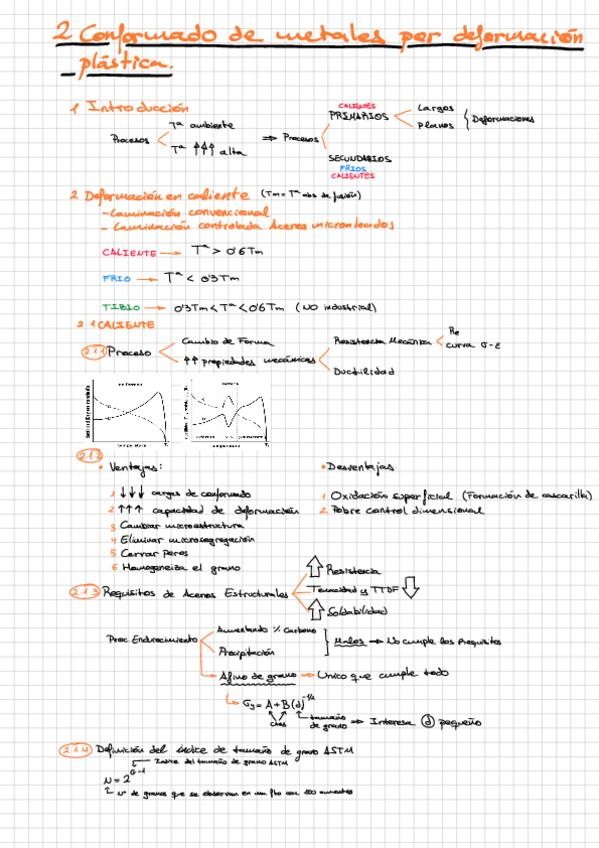 2 Conformado de metales por deformación
plástica.
1 Introducción
Procesos
Tª ambiente
Tª ↑↑↑ alta
⇒ Procesos
CALIENTES
PRIMARIOS
Largos
Planos
Deformaciones
SECUNDARIOS
FRIOS
CALIENTES
2 Deformación en caliente (Tm = Tª abs de fusión)
- Laminación convencional
- Laminación controlada Aceros microaleados
CALIENTE → Tª > 0'6 Tm
FRIO → Tª < 0'3 Tm
TIBIO → 0'3 Tm < Tª < 0'6 Tm (NO industrial)
2.1 CALIENTE
2.1.1 Proceso
Cambio de Forma
↑↑ propiedades mecánicas
Resistencia Mecánica
Re
curva σ-ε
Ductilidad
2.1.2
• Ventajas:
1 ↓↓↓ cargas de conformado
2 ↑↑↑ capacidad de deformación
3 Cambiar microestructura
4 Eliminar microsegregación
5 Cerrar Poros
6 Homogeneiza el grano
• Desventajas
1 Oxidación superficial (Formación de cascarilla)
2 Pobre control dimensional
2.1.3 Requisitos de Aceros Estructurales
⇑ Resistencia
Tenacidad y TTDF ⇓
⇑ Soldabilidad
Proc. Endurecimiento
Aumentando % Carbono
Precipitación
Malos → No cumple los Requisitos
Afino de grano → Unico que cumple todo
σy = A + B(d)^-1/2
ctes
tamaño de grano ⇒ Interesa d pequeño
2.1.4 Definición del índice de tamaño de grano ASTM
Indice del tamaño de grano ASTM
N = 2^G-1
Nº de granos que se observan en un plho con 100 aumentos